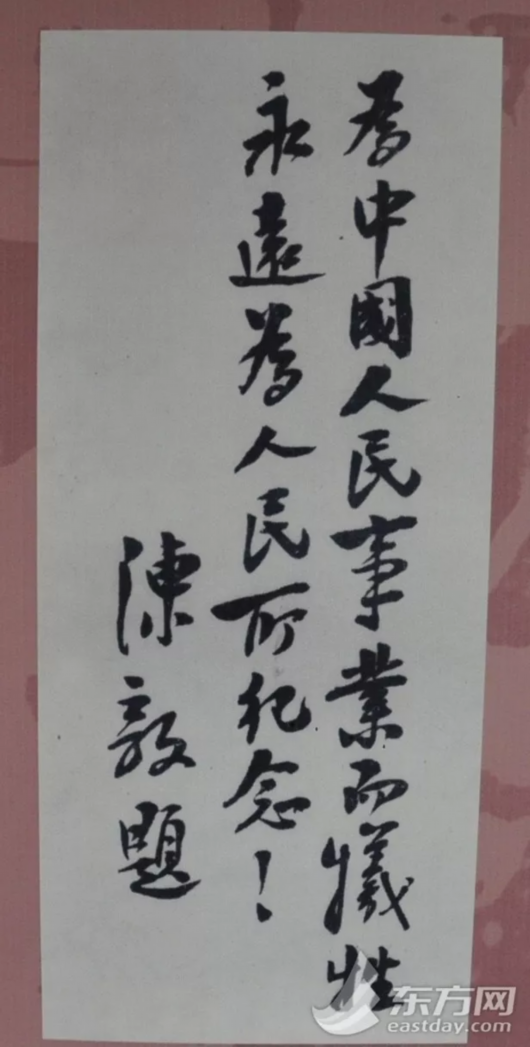 為中國人民事業而犧牲
永遠為人民所纪念！
陳毅題
东方网
eastday.com